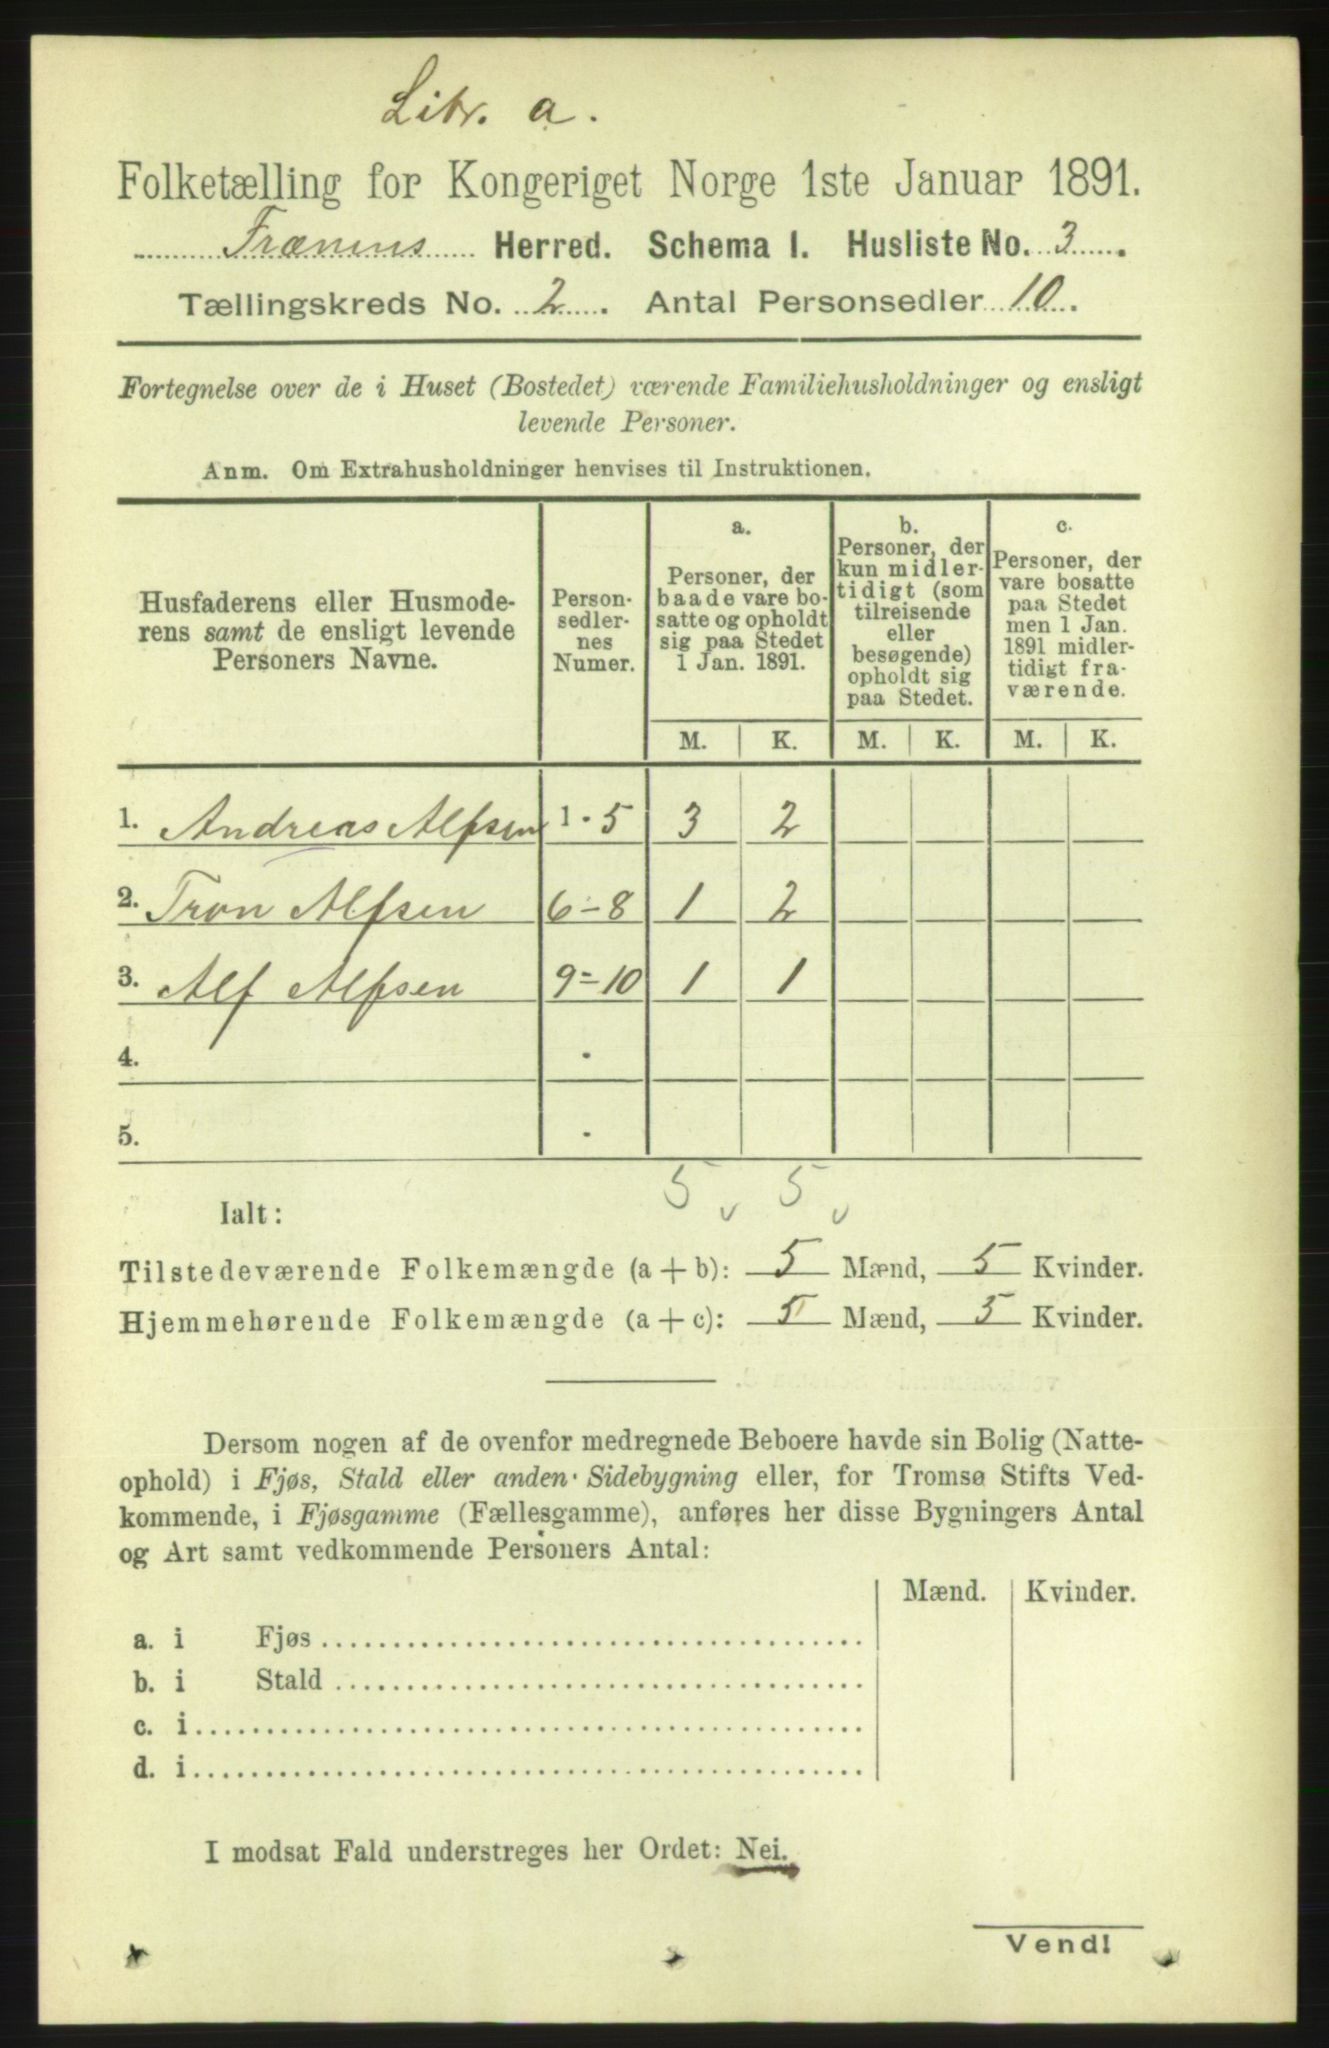 Litr. a.
Folketælling for Kongeriget Norge 1ste Januar 1891.
Frænens Herred. Schema I. Husliste No. 3.
Tællingskreds No. 2. Antal Personsedler 10.
Fortegnelse over de i Huset (Bostedet) værende Familiehusholdninger og ensligt
levende Personer.
Anm. Om Extrahusholdninger henvises til Instruktionen.
Husfaderens eller Husmode-
rens samt de ensligt levende
Personers Navne.
Person-
sedler-
nes
Numer.
a.
Personer, der
baade vare bo-
satte og opholdt
sig paa Stedet
1 Jan. 1891.
b.
Personer, der
kun midler-
tidigt (som
tilreisende
eller
besøgende)
opholdt sig
paa Stedet.
c.
Personer, der
vare bosatte
paa Stedet
men 1 Jan.
1891 midler-
tidigt fra-
værende.
M. K. M. K. M. K.
1. Andreas Alfsen 1 - 5 3 2
2. Tron Alfsen 6-8 1 2
3. Alf Alfsen 9=10 1 1
4. .
5. .
5 v 5 v
Ialt:
Tilstedeværende Folkemængde (a + b): 5 Mænd, 5 Kvinder.
Hjemmehørende Folkemængde (a + c): 5 Mænd, 5 Kvinder.
Dersom nogen af de ovenfor medregnede Beboere havde sin Bolig (Natte-
ophold) i Fjøs, Stald eller anden Sidebygning eller, for Tromsø Stifts Ved-
kommende, i Fjøsgamme (Fællesgamme), anføres her disse Bygningers Antal
og Art samt vedkommende Personers Antal:
Mænd. Kvinder.
a. i Fjøs
b. i Stald
c. i
d. i
I modsat Fald understreges her Ordet: Nei.
Vend!